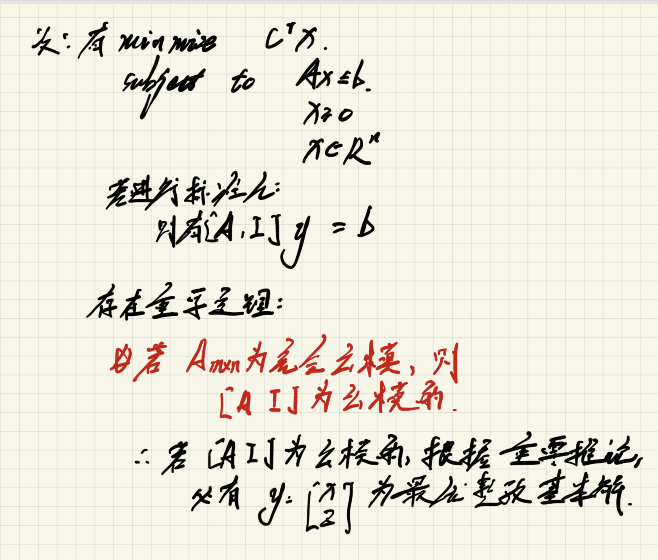 次:有 minimize C^T x.
subject to Ax≤b.
x≥0
x∈R^n
若进行标准化:
则有[A,I]y = b
存在重要定理:
若 A_{m×n}为完全幺模,则
[A I]为幺模的.
∴ 若[A I]为幺模的,根据重要推论,
必有 y=[x z] 为最优整数基本解.